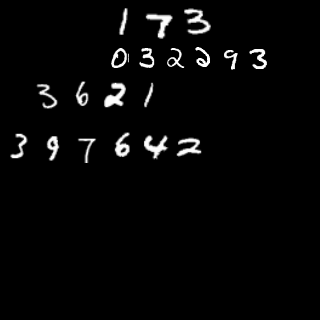 173
032293
3621
397642